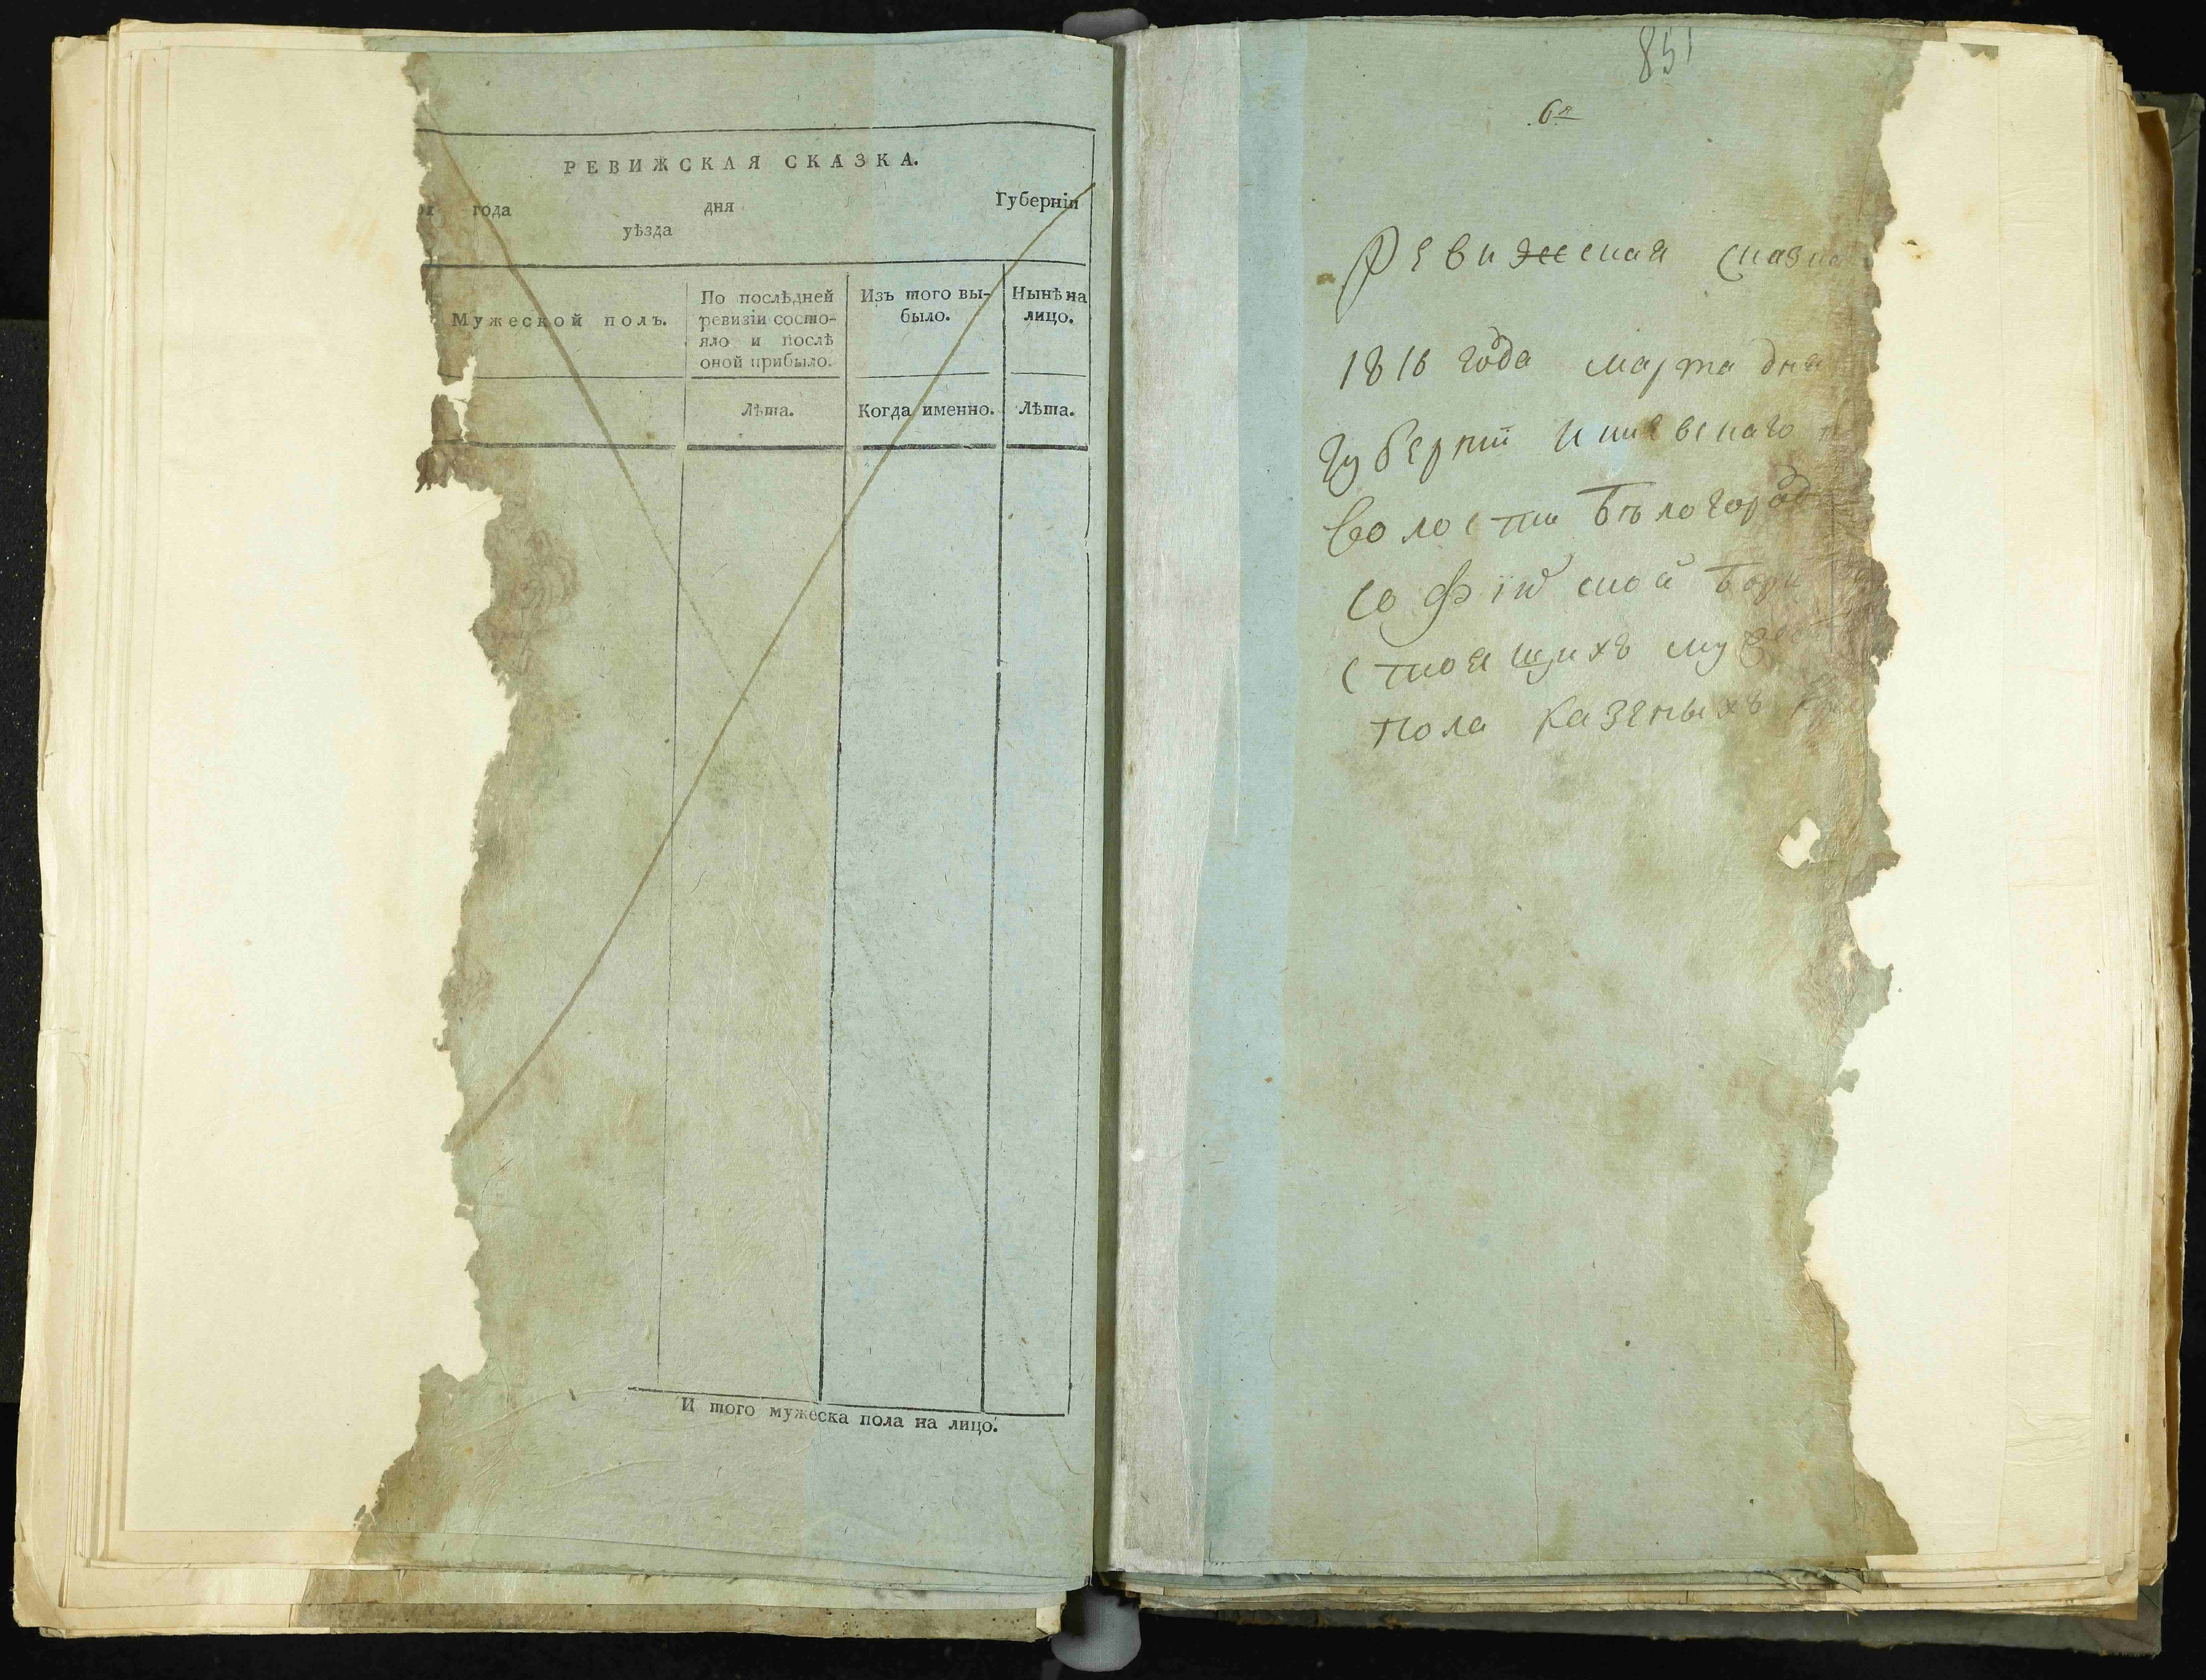 РЕВИЖСКАЯ СКАЗКА.
года дня Губерніи
уѣзда
Мужеской полъ.
По послѣдней
ревизіи состо-
яло и послѣ
оной прибыло.
Изъ того вы-
было.
Нынѣ на
лицо.
Лѣта.
Когда именно.
Лѣта.
И того мужеска пола на лицо.
851
6я
Ревижская сказка
1816 года марта дня
губерніи Киевскаго
волости Бѣлогород
Софійской Бор
стоящихъ муже
пола казеныхъ